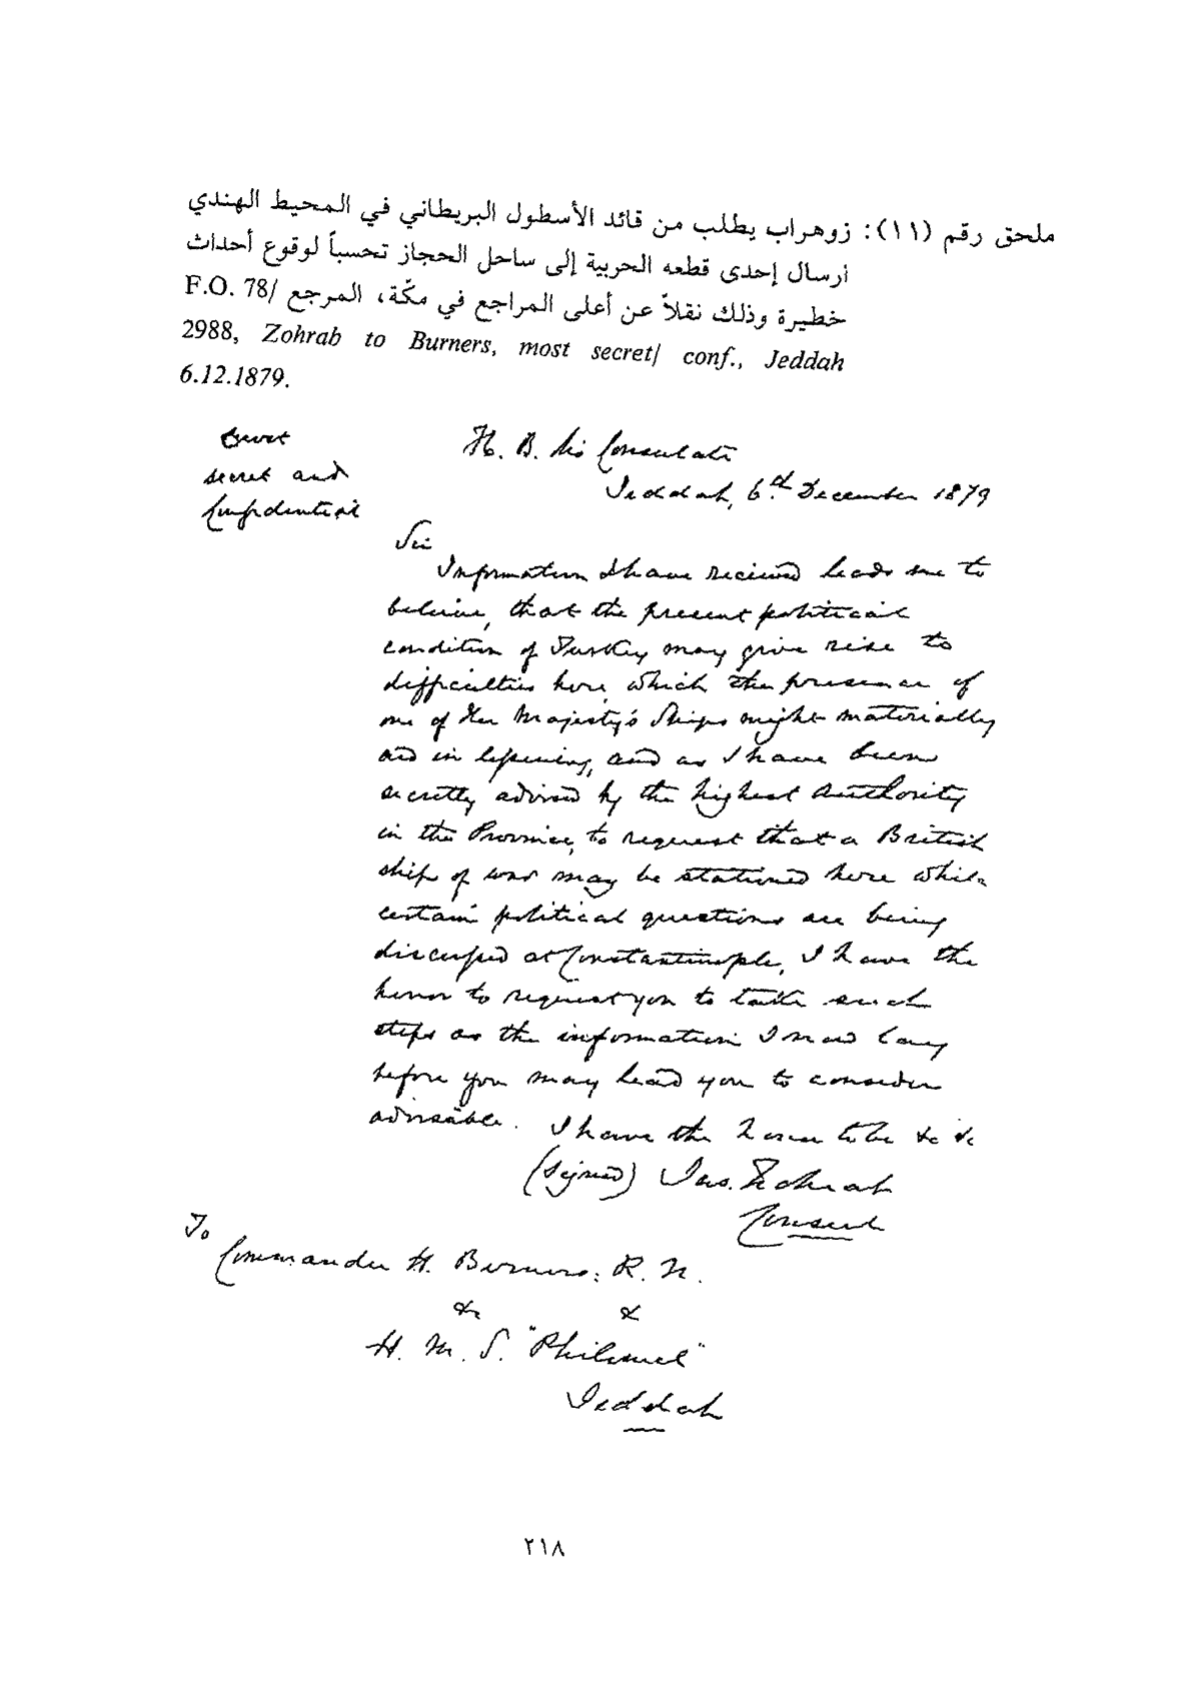 ملحق رقم (١١): زوهراب يطلب من قائد الأسطول البريطاني في المحيط الهندي
أرسال إحدى قطعه الحربية إلى ساحل الحجاز تحسباً لوقوع أحداث
خطيرة وذلك نقلاً عن أعلى المراجع في مكّة، المرجع F.O. 78/
2988, Zohrab to Burners, most secret/ conf., Jeddah
6.12.1879.
secret and
Confidential
H. B. Ms Consulate
Jeddah, 6th December 1879
Sir
Information I have received leads me to
believe, that the present political
condition of Turkey may give rise to
difficulties here, which the presence of
one of Her Majesty's Ships might materially
aid in lessening, and as I have been
secretly advised by the highest authority
in the Province, to request that a British
ship of war may be stationed here while
certain political questions are being
discussed at Constantinople, I have the
honor to request you to take such
steps as the information I now lay
before you may lead you to consider
advisable. I have the honor to be &c &c
(signed) Jas. Zohrab
Consul
To
Commander H. Berners: R. N.
&c &
H. M. S. "Philomel"
Jeddah
٢١٨